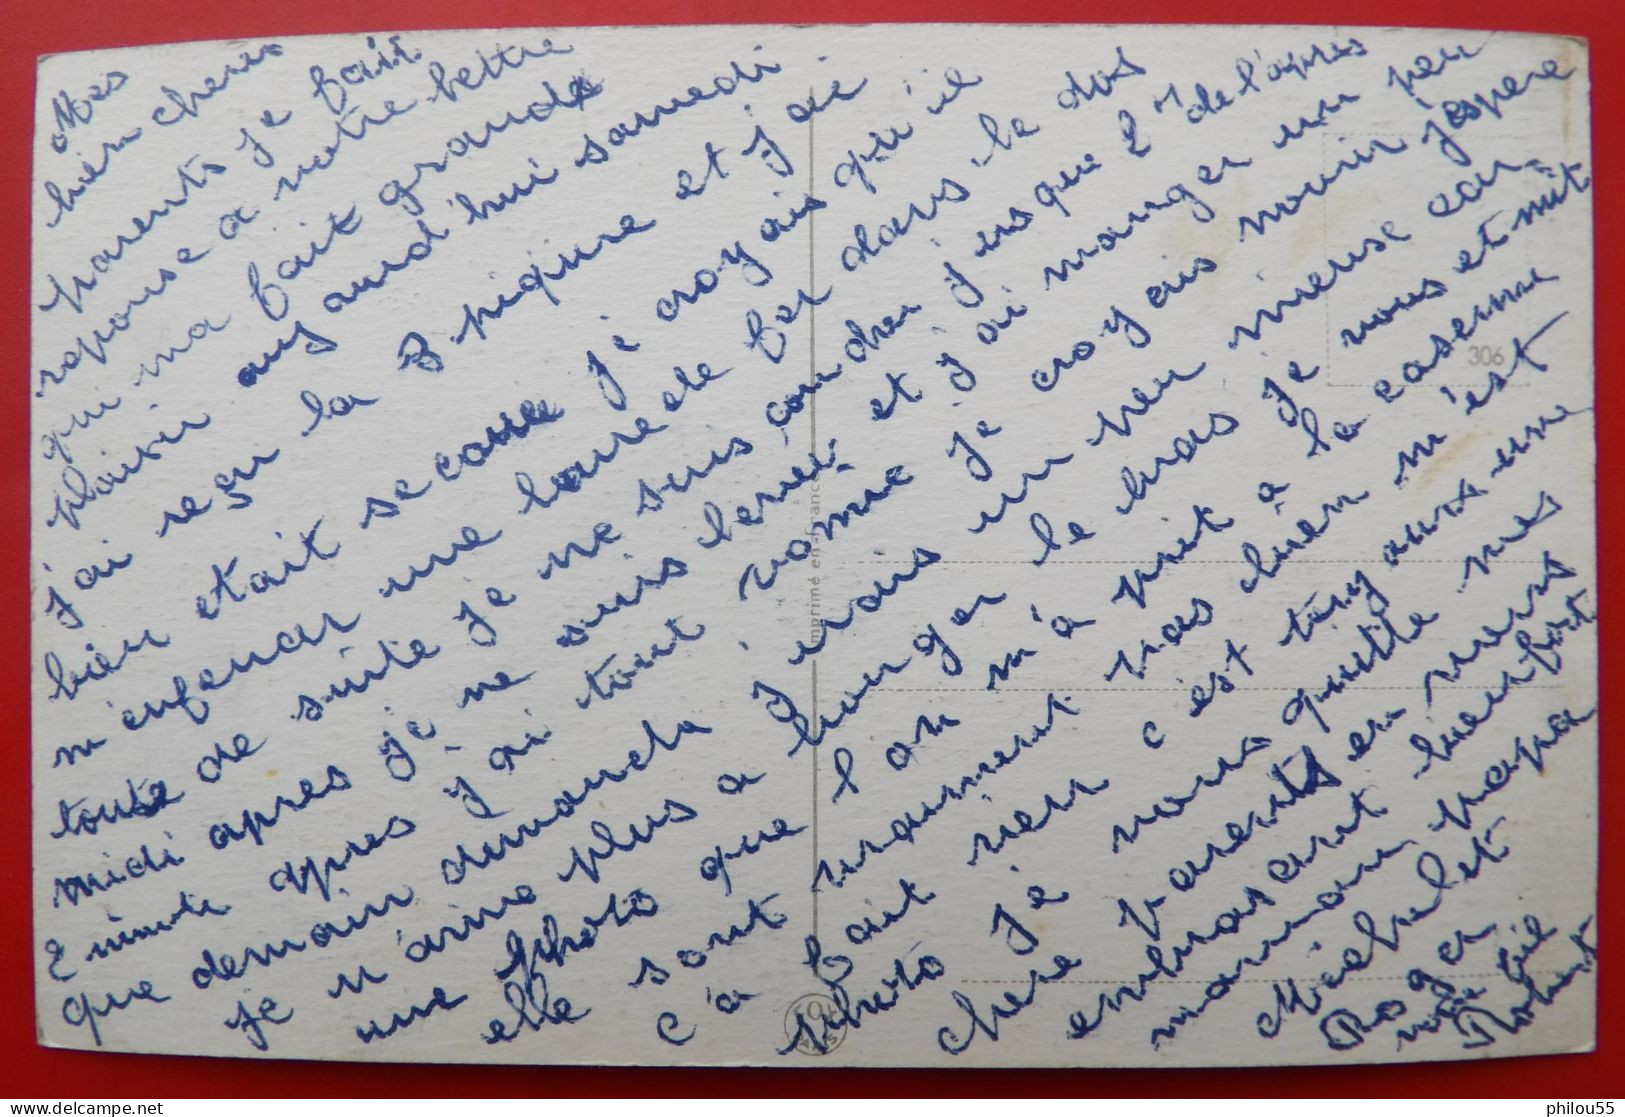 Mes
bien cheres
parents je fait
reponse a votre lettre
qui ma fait grande
plaisir aujourd'hui samedi
j'ai reçu la 3 piqure et j'ai
bien etait secoue je croyais qu'il
m'enfoncer une barre de fer dans le dos
toute de suite je ne suis coucher jusque 2 h de l'apres
midi apres je me suis lever et j'ai manger un peu
2 minute apres j'ai tout vomie je croyais mourir j'espere
que demain dimanche j'irais un peu mieux car
je n'arive plus a bouger le bras je vous et mit
une photo que l'on m'a prit a la caserne
elle sont vraiment pas bien m'est
c'a fait rien c'est toujours une
photo je vous quitte mes
chere parents en vous
embrassant bien fort
maman papa
Michelet
Roger
votre fils
Robert
306
Imprimé en France